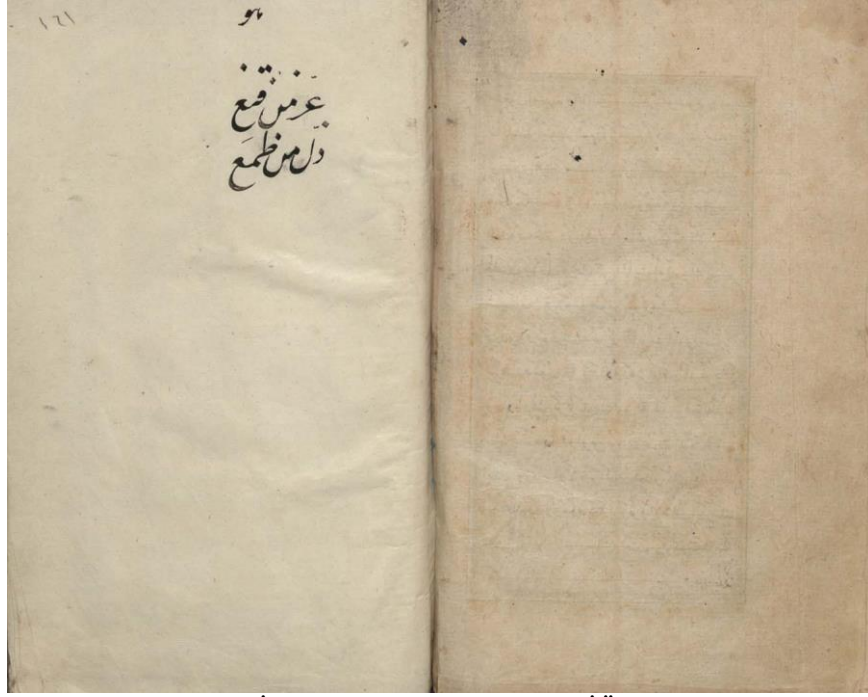 ١٦١
هو
عزّ من قنع
ذلّ من طمع